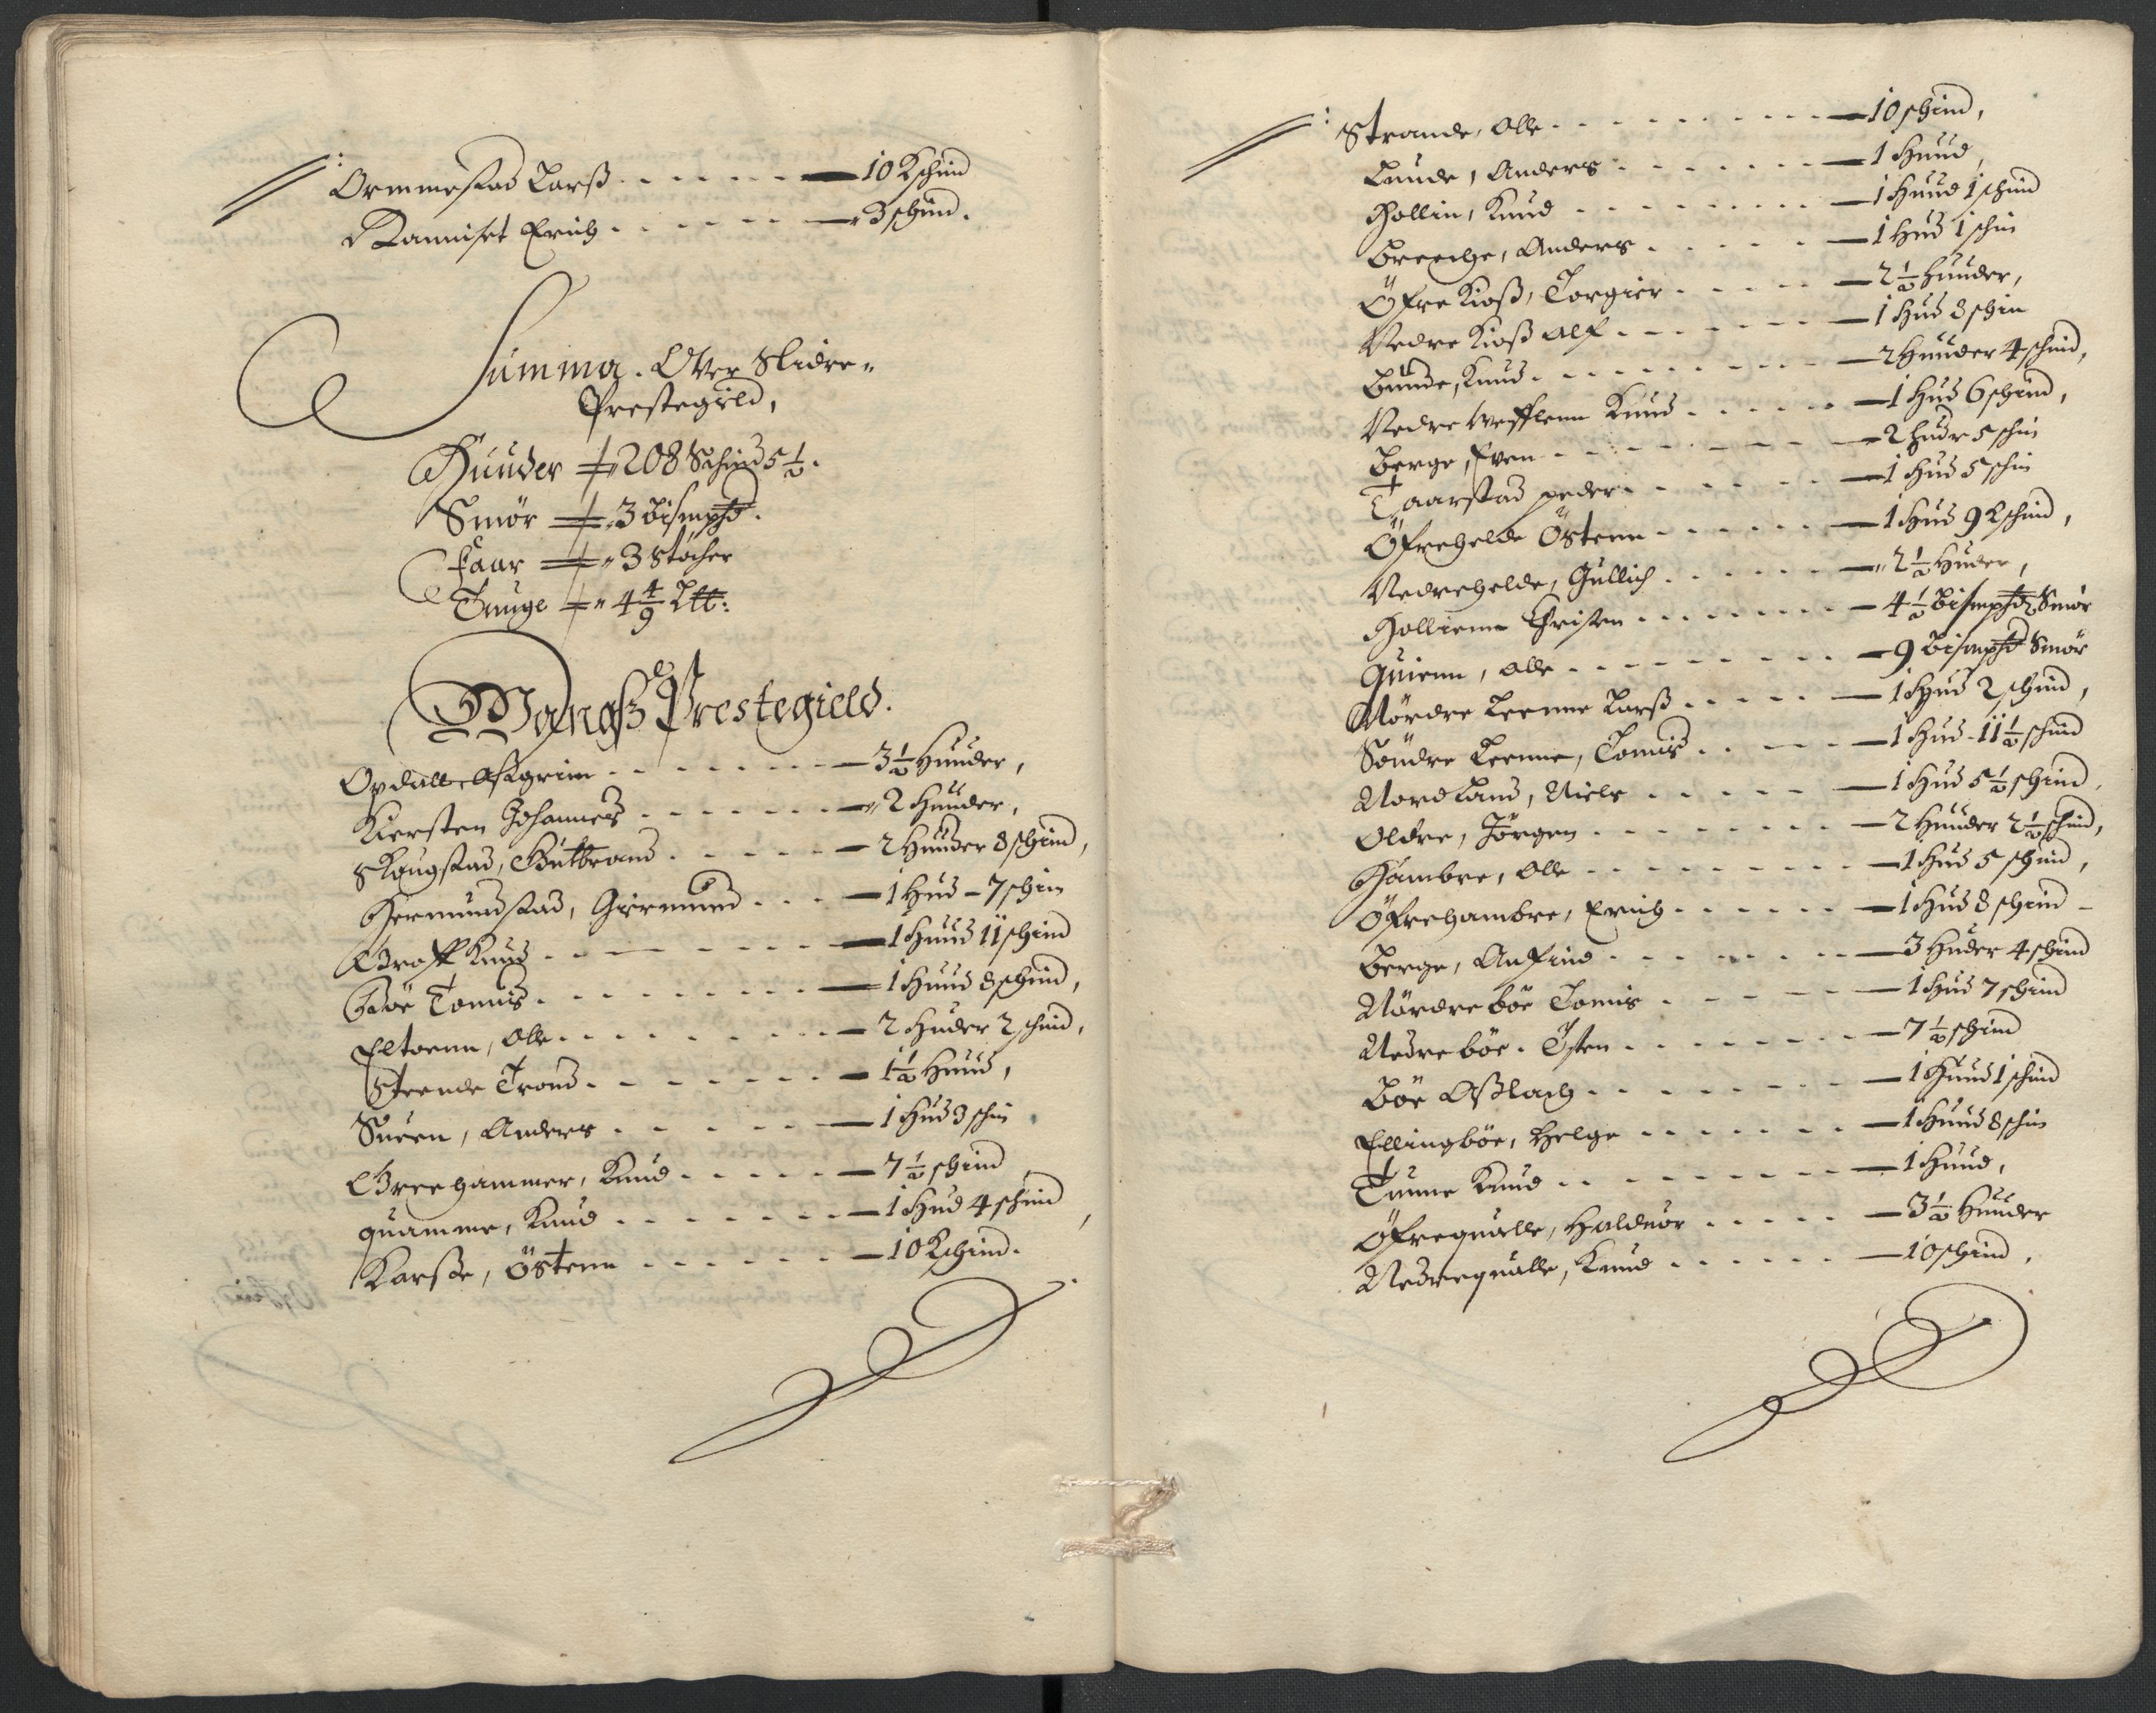 Ormmestad Larß - - - - - 10 Kschind
Kamiset Erich - - - - - 3 schind.
Summa. Over Slidre
Prestegield,
Huuder 208 Schind 5 1/2.
Smör 3 Bismpd.
Faar 3 Støcher
Tunge 4 4/9 L℔:
Wangß Prestegield.
Opdall Asgrim - - - - 3 1/2 Huuder,
Kiersten Johannes - - - - 2 Huuder,
Skougstad, Gulbrand - - - - 2 Huuder 8 schind,
Hermundstad, Giermund - - - 1 Hud - 7 schin
Groff Knud - - - - 1 Huud 11 schind
Böe Tomis - - - - 1 Huud 8 schind,
Eltoenn, Olle - - - - 2 Huder 2 schind,
Steende Trond - - - - 1 1/2 Huud,
Sueen, Anders - - - - 1 Hud 3 schin
Greehammer, Knud - - - - 7 1/2 schind
quamme, Knud - - - - 1 Hud 4 schind,
Karsse, Östenn - - - - 10 Kschind.
Strande, Olle - - - - 10 schind,
Lunde, Anders - - - - 1 Huud,
Hollin, Knud - - - - 1 Huud 1 schind
Breche, Anders - - - - 1 Hud 1 schin
Öfre Kioß, Torgier - - - - 2 1/2 Huuder,
Nedre Kioß Alf - - - - 1 Hud 8 schin
Bunde, Knud - - - - 2 Huuder 4 schind,
Nedre Wefflenn Knud - - - - 1 Hud 6 schind,
Berge, Even - - - - 2 Hudr 5 schin
Taarstad peder - - - - 1 Hud 5 schin
Öfrehelde Östenn - - - - 1 Hud 9 Kschind,
Nedrehelde, Gullich - - - - 2 1/2 Huder,
Hollienn Christen - - - - 4 1/2 Bismpd Smör
Quienn, Olle - - - - 9 Bismpd Smör
Nördre Leenne Larß - - - - 1 Hud 2 schind,
Söndre Leenne, Tomis - - - - 1 Hud - 11 1/2 schind
Nordland, Niels - - - - 1 Hud 5 1/2 schind,
Oldre, Jörgen - - - - 2 Huuder 2 1/2 schind,
Hambre, Olle - - - - 1 Hud 5 schind,
Öfrehambre, Erich - - - - 1 Hud 8 schind -
Berge, Anfind - - - - 3 Huder 4 schind
Nördre böe Tomis - - - - 1 Hud 7 schind
Nedre böe. Östen - - - - 7 1/2 schind
Böe Asslach - - - - 1 Huud 1 schind
Ellingböe, Helge - - - - 1 Huud 8 schin
Tunne Knud - - - - 1 Huud,
Öfrequalle, Haldvor - - - - 3 1/2 Huuder
Nedrequalle, Knud - - - - 10 schind,